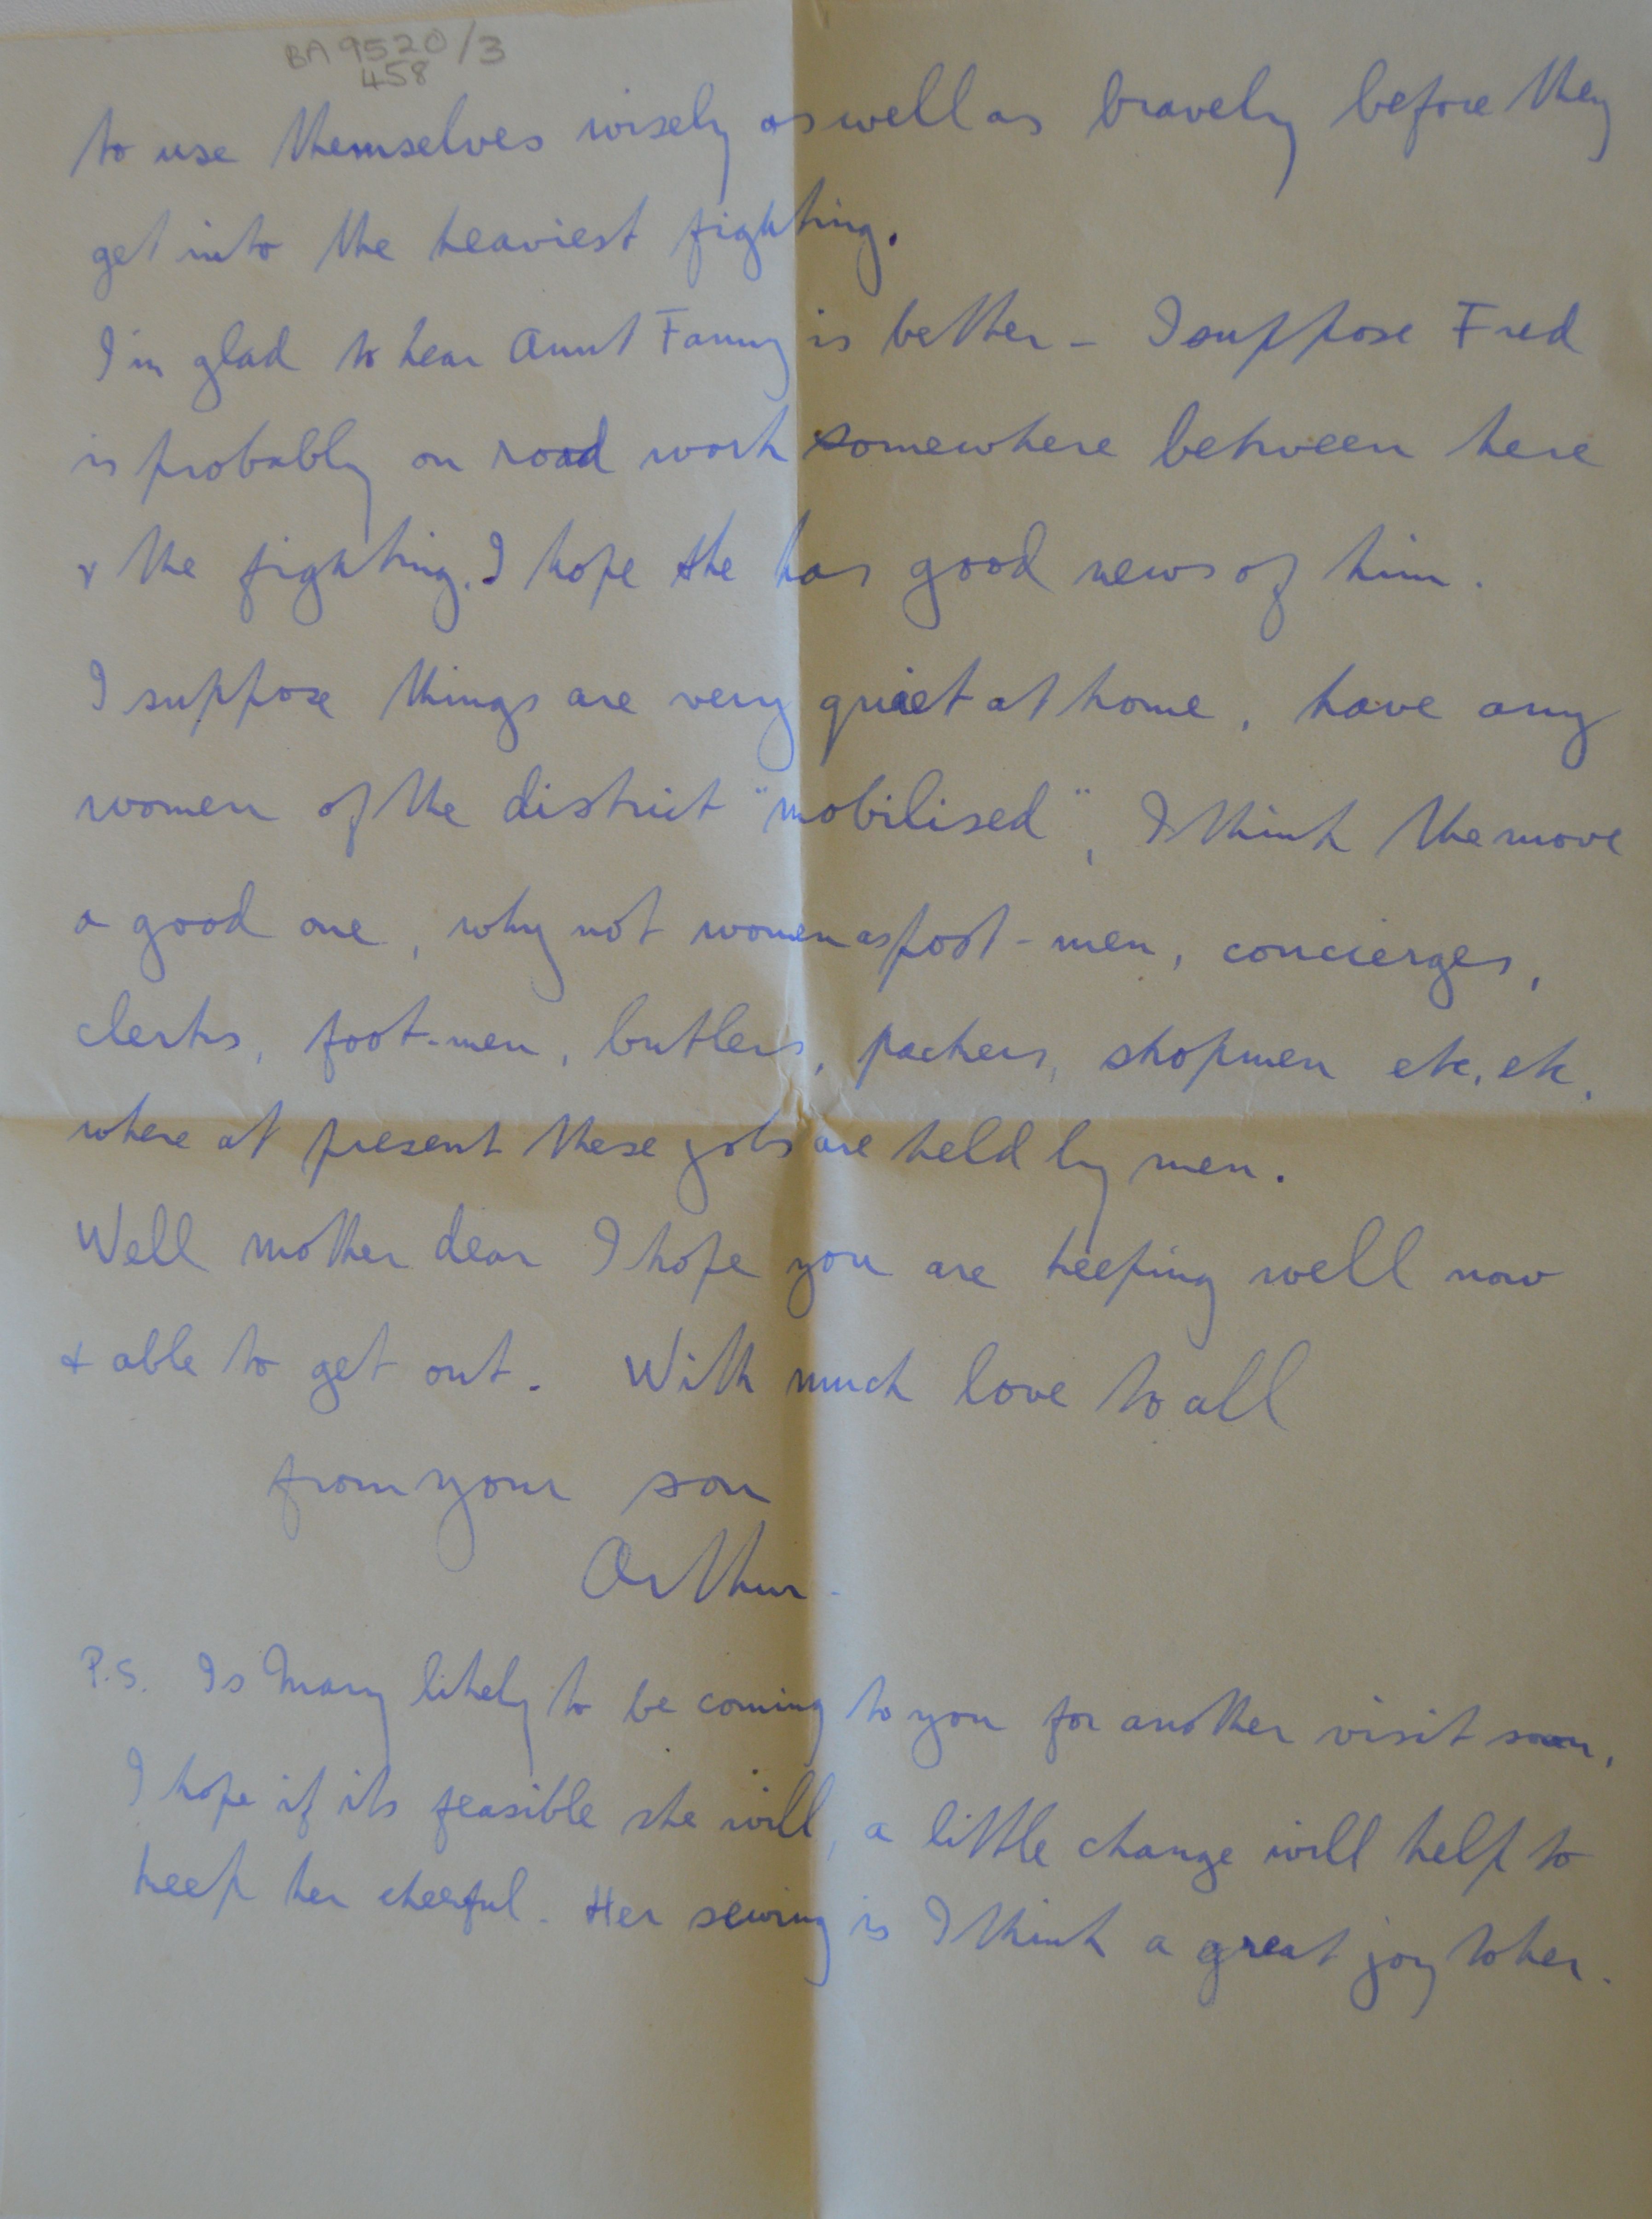 BA 9520/3
458
to use themselves wisely as well as bravely before they
get into the heaviest fighting.
I'm glad to hear Aunt Fanny is better - I suppose Fred
is probably on road work somewhere between here
& the fighting. I hope she has good news of him.
I suppose things are very quiet at home, have any
women of the district "mobilised", I think the move
a good one, why not women as foot-men, concierges,
clerks, foot-men, butlers, packers, shopmen etc, etc.
where at present these jobs are held by men.
Well mother dear I hope you are keeping well now
& able to get out. With much love to all
from your son
Arthur.
P.S. Is Mary likely to be coming to you for another visit soon,
I hope if its feasible she will, a little change will help to
keep her cheerful. Her sewing is I think a great joy to her.